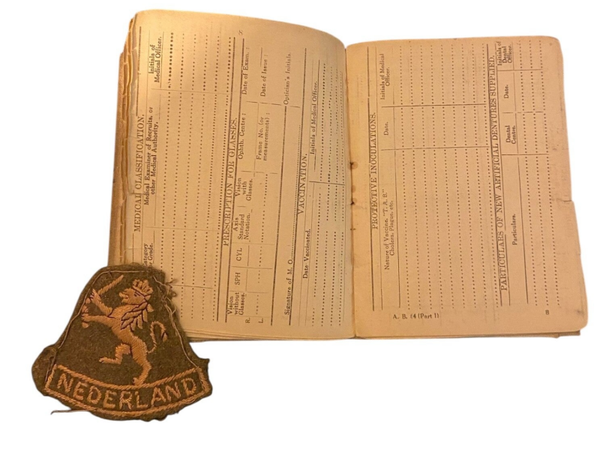 MEDICAL CLASSIFICATION.
Medical Examiner of Recruits, or
other Medical Authority.
Initials of
Medical Officer.
Grade.
PRESCRIPTION FOR GLASSES.
Ophth. Centre:
Date of Exam:
Frame No. (or
measurements):
Date of Issue:
Vision
without
Glasses.
SPH
CYL
Axis
Standard
Notation.
Vision
with
Glasses.
R.
L.
Signature of M.O.
Optician's Initials.
VACCINATION.
Date Vaccinated.
Initials of Medical Officer.
PROTECTIVE INOCULATIONS.
Names of Vaccine, "T. A. B."
Cholera, Plague, etc.
Date.
Initials of Medical
Officer.
PARTICULARS OF NEW ARTIFICIAL DENTURES SUPPLIED.
Particulars.
Dental
Centre.
Date.
Initials of
Dental
Officer.
A. B. 64 (Part I)
B
NEDERLAND